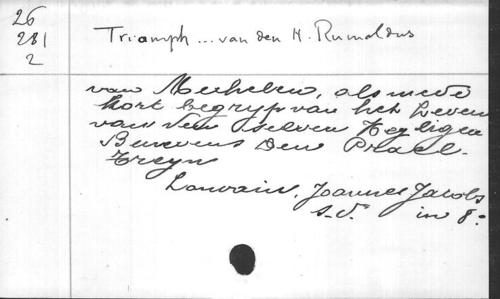 26
281
2
Triomph... van den H. Rumoldus
van Mechelen, als mede
kort begryp van het Leven
van den selven Heyligen
Benevens den Prael-
treyn
Louvain, Joannes Jacobs
s.d. in 8º